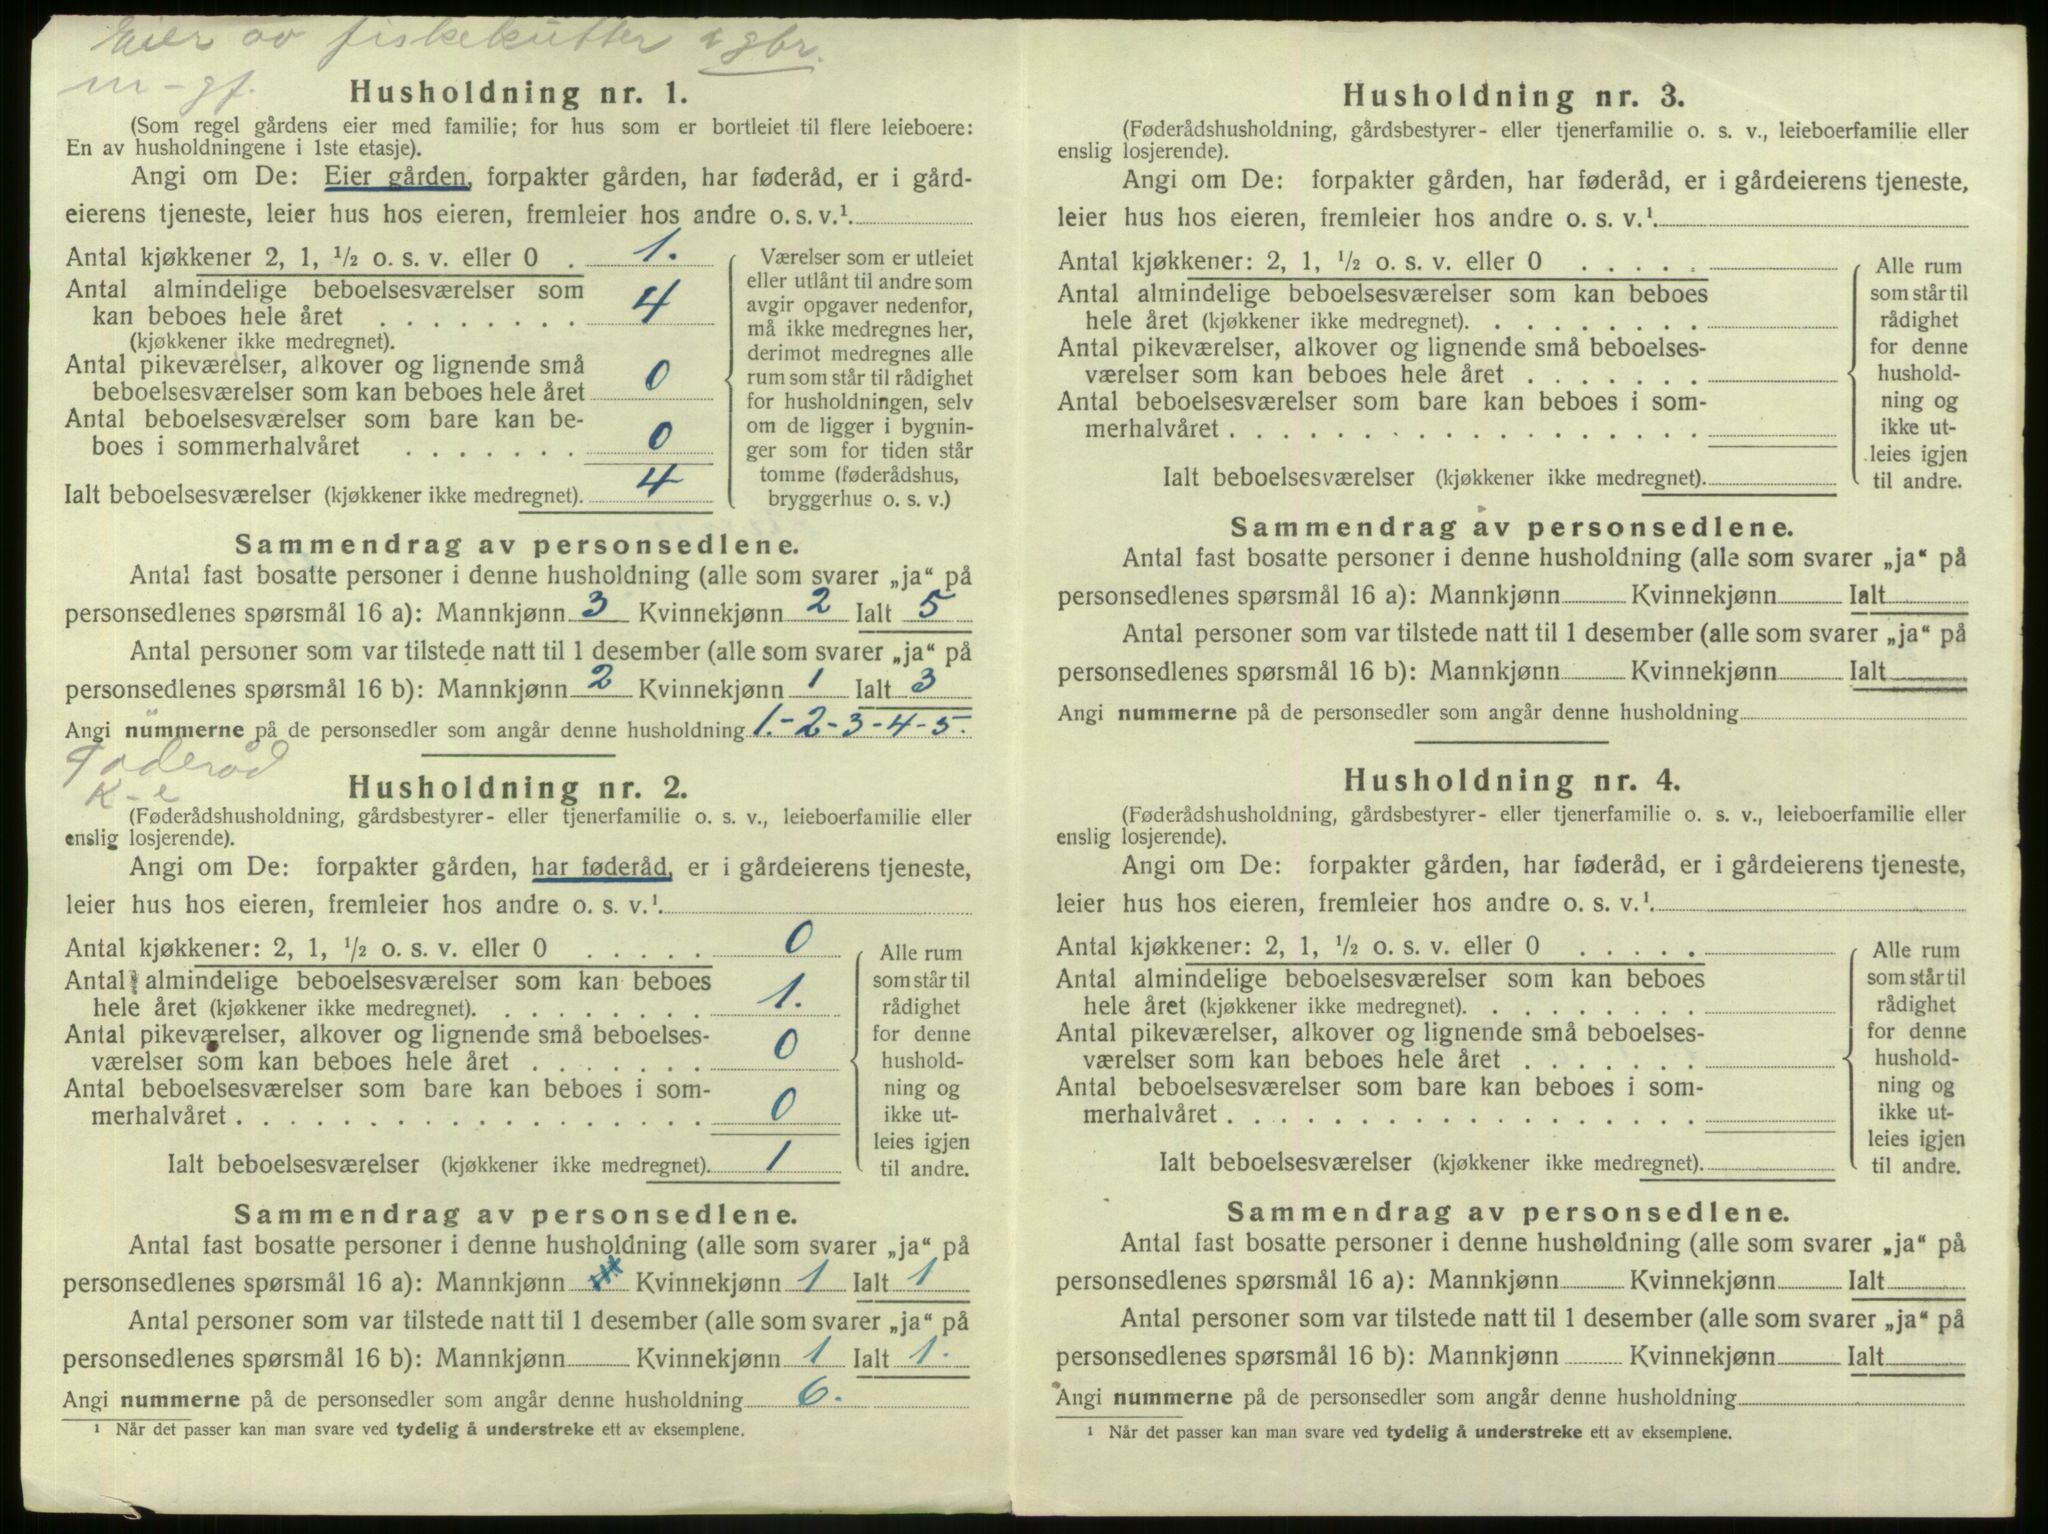 Eier av fiskekutter & gbr.
m-gf.
Husholdning nr. 1.
(Som regel gårdens eier med familie; for hus som er bortleiet til flere leieboere:
En av husholdningene i 1ste etasje).
Angi om De: Eier gården, forpakter gården, har føderåd, er i gård-
eierens tjeneste, leier hus hos eieren, fremleier hos andre o. s. v.¹
Antal kjøkkener 2, 1, ½ o. s. v. eller 0 . 1.
Antal almindelige beboelsesværelser som
kan beboes hele året . . . . . . . . 4
(kjøkkener ikke medregnet).
Antal pikeværelser, alkover og lignende små
beboelsesværelser som kan beboes hele året 0
Antal beboelsesværelser som bare kan be-
boes i sommerhalvåret . . . . . . . 0
Ialt beboelsesværelser (kjøkkener ikke medregnet). 4
Værelser som er utleiet
eller utlånt til andre som
avgir opgaver nedenfor,
må ikke medregnes her,
derimot medregnes alle
rum som står til rådighet
for husholdningen, selv
om de ligger i bygnin-
ger som for tiden står
tomme (føderådshus,
bryggerhus o. s. v.)
Sammendrag av personsedlene.
Antal fast bosatte personer i denne husholdning (alle som svarer „ja“ på
personsedlenes spørsmål 16 a): Mannkjønn 3 Kvinnekjønn 2 Ialt 5
Antal personer som var tilstede natt til 1 desember (alle som svarer „ja“ på
personsedlenes spørsmål 16 b): Mannkjønn 2 Kvinnekjønn 1 Ialt 3
Angi nummerne på de personsedler som angår denne husholdning 1.-2-3-4-5.
Føderåd
K-e
Husholdning nr. 2.
(Føderådshusholdning, gårdsbestyrer- eller tjenerfamilie o. s. v., leieboerfamilie eller
enslig losjerende).
Angi om De: forpakter gården, har føderåd, er i gårdeierens tjeneste,
leier hus hos eieren, fremleier hos andre o. s. v.¹
Antal kjøkkener: 2, 1, ½ o. s. v. eller 0 . . . . . 0
Antal almindelige beboelsesværelser som kan beboes
hele året (kjøkkener ikke medregnet). . . . . . . . . 1.
Antal pikeværelser, alkover og lignende små beboelses-
værelser som kan beboes hele året . . . . . . . 0
Antal beboelsesværelser som bare kan beboes i som-
merhalvåret . . . . . . . . . . . . . . . . . . 0
Ialt beboelsesværelser (kjøkkener ikke medregnet). 1
Alle rum
som står til
rådighet
for denne
hushold-
ning og
ikke ut-
leies igjen
til andre.
Sammendrag av personsedlene.
Antal fast bosatte personer i denne husholdning (alle som svarer „ja“ på
personsedlenes spørsmål 16 a): Mannkjønn Kvinnekjønn 1 Ialt 1
Antal personer som var tilstede natt til 1 desember (alle som svarer „ja“ på
personsedlenes spørsmål 16 b): Mannkjønn Kvinnekjønn 1 Ialt 1.
Angi nummerne på de personsedler som angår denne husholdning 6.
¹ Når det passer kan man svare ved tydelig å understreke ett av eksemplene.
Husholdning nr. 3.
(Føderådshusholdning, gårdsbestyrer- eller tjenerfamilie o. s. v., leieboerfamilie eller
enslig losjerende).
Angi om De: forpakter gården, har føderåd, er i gårdeierens tjeneste,
leier hus hos eieren, fremleier hos andre o. s. v.¹
Antal kjøkkener: 2, 1, ½ o. s. v. eller 0 . . . . .
Antal almindelige beboelsesværelser som kan beboes
hele året (kjøkkener ikke medregnet). . . . . . . . .
Antal pikeværelser, alkover og lignende små beboelses-
værelser som kan beboes hele året . . . . . . .
Antal beboelsesværelser som bare kan beboes i som-
merhalvåret . . . . . . . . . . . . . . . . . .
Ialt beboelsesværelser (kjøkkener ikke medregnet).
Alle rum
som står til
rådighet
for denne
hushold-
ning og
ikke ut-
leies igjen
til andre.
Sammendrag av personsedlene.
Antal fast bosatte personer i denne husholdning (alle som svarer „ja“ på
personsedlenes spørsmål 16 a): Mannkjønn Kvinnekjønn Ialt
Antal personer som var tilstede natt til 1 desember (alle som svarer „ja“ på
personsedlenes spørsmål 16 b): Mannkjønn Kvinnekjønn Ialt
Angi nummerne på de personsedler som angår denne husholdning
Husholdning nr. 4.
(Føderådshusholdning, gårdsbestyrer- eller tjenerfamilie o. s. v., leieboerfamilie eller
enslig losjerende).
Angi om De: forpakter gården, har føderåd, er i gårdeierens tjeneste,
leier hus hos eieren, fremleier hos andre o. s. v.¹
Antal kjøkkener: 2, 1, ½ o. s. v. eller 0 . . . . .
Antal almindelige beboelsesværelser som kan beboes
hele året (kjøkkener ikke medregnet). . . . . . . . .
Antal pikeværelser, alkover og lignende små beboelses-
værelser som kan beboes hele året . . . . . . .
Antal beboelsesværelser som bare kan beboes i som-
merhalvåret . . . . . . . . . . . . . . . . . .
Ialt beboelsesværelser (kjøkkener ikke medregnet).
Alle rum
som står til
rådighet
for denne
hushold-
ning og
ikke ut-
leies igjen
til andre.
Sammendrag av personsedlene.
Antal fast bosatte personer i denne husholdning (alle som svarer „ja“ på
personsedlenes spørsmål 16 a): Mannkjønn Kvinnekjønn Ialt
Antal personer som var tilstede natt til 1 desember (alle som svarer „ja“ på
personsedlenes spørsmål 16 b): Mannkjønn Kvinnekjønn Ialt
Angi nummerne på de personsedler som angår denne husholdning
¹ Når det passer kan man svare ved tydelig å understreke ett av eksemplene.